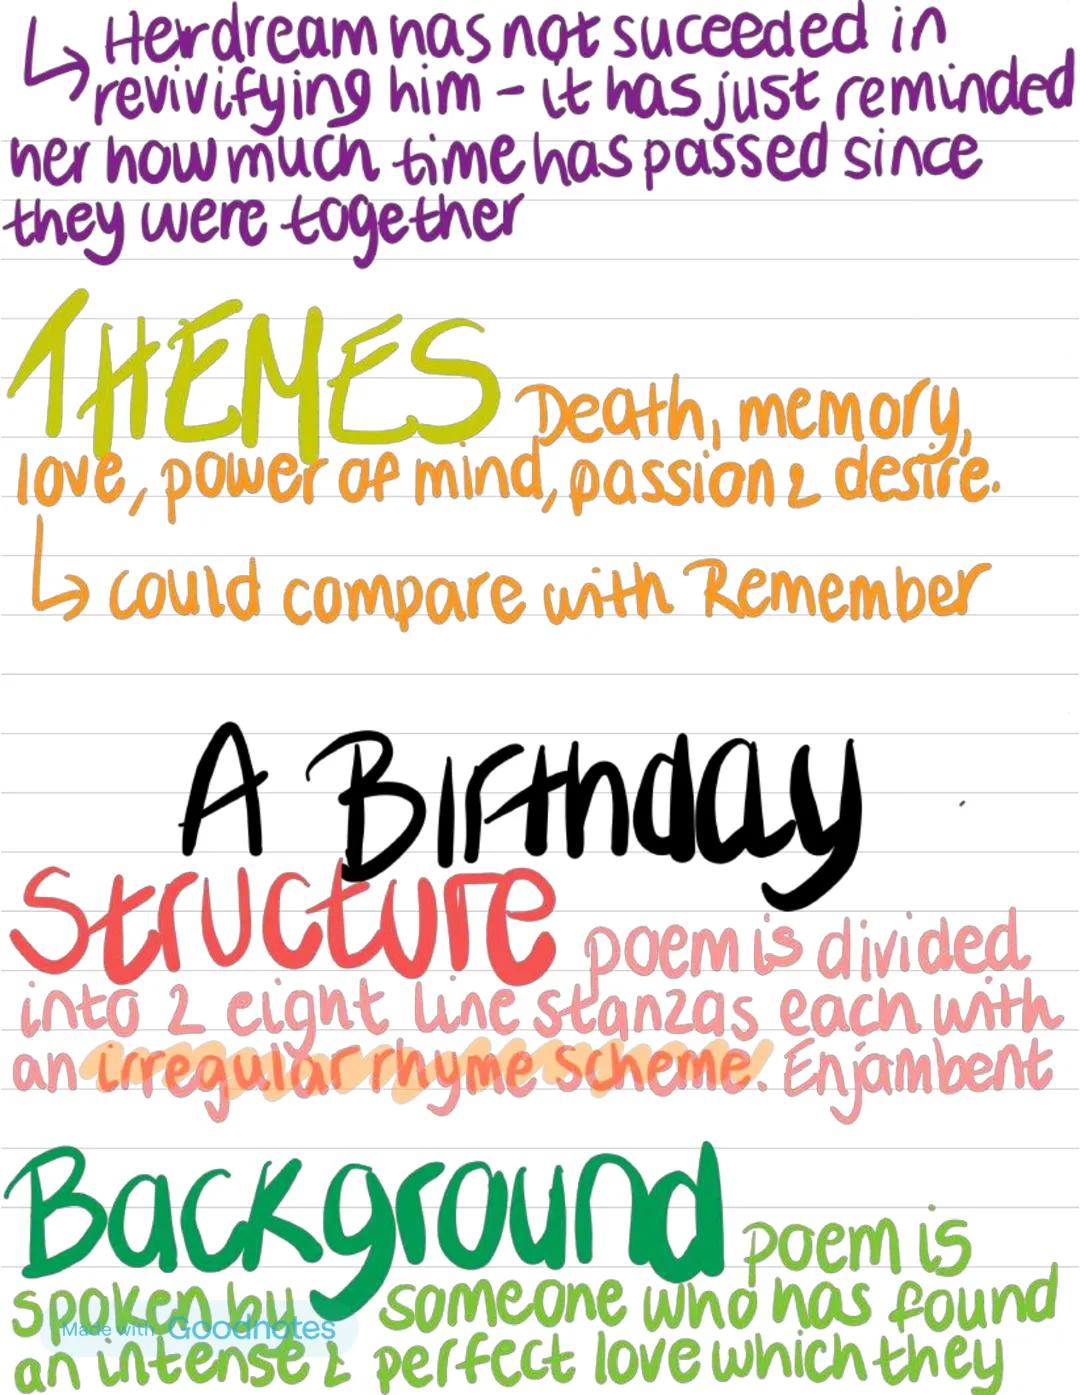 ↳ Her dream has not suceeded in
revivifying him - it has just reminded
her how much time has passed since
they were together
THEMES Death, memory,
love, power of mind, passion & desire.
↳ could compare with Remember
A Birthday
Structure poem is divided
into 2 eight line stanzas each with
an irregular rhyme scheme. Enjambent
Background poem is
spoken by someone who has found
Made with Goodnotes
an intense & perfect love which they